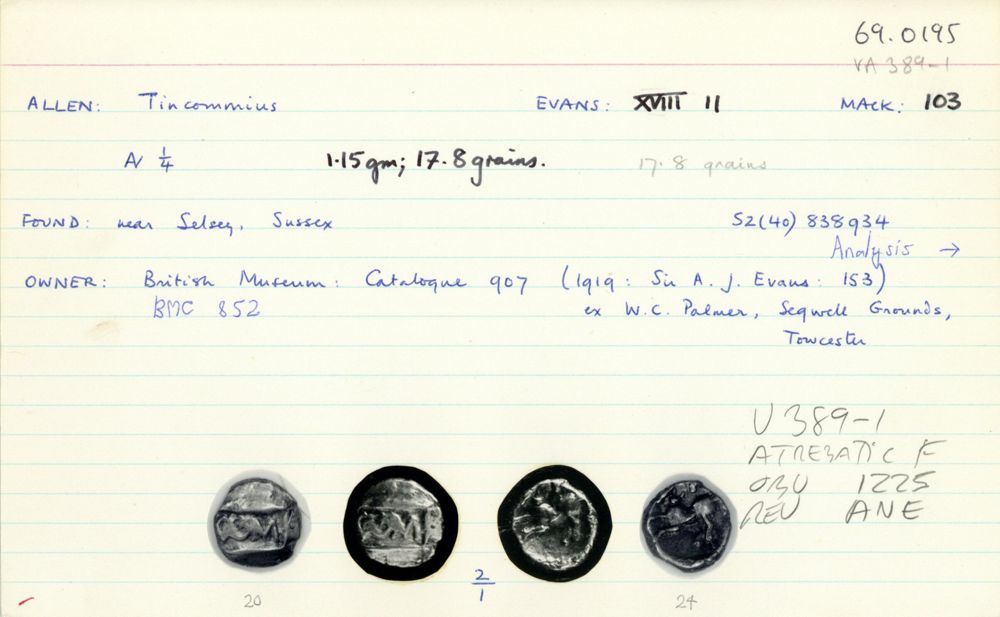 69.0195
VA 389-1
ALLEN: Tincommius EVANS: XVIII 11 MACK: 103
AV 1/4 1.15gm; 17.8 grains. 17.8 grains
FOUND: near Selsey, Sussex SZ(40) 838934
Analysis →
OWNER: British Museum: Catalogue 907 (1919: Sir A. J. Evans: 153)
BMC 852 ex W.C. Palmer, Seqwell Grounds,
Towcester
V 389-1
ATREBATIC F
OBV 1225
REV ANE
COMF COMF
2/1
20 24